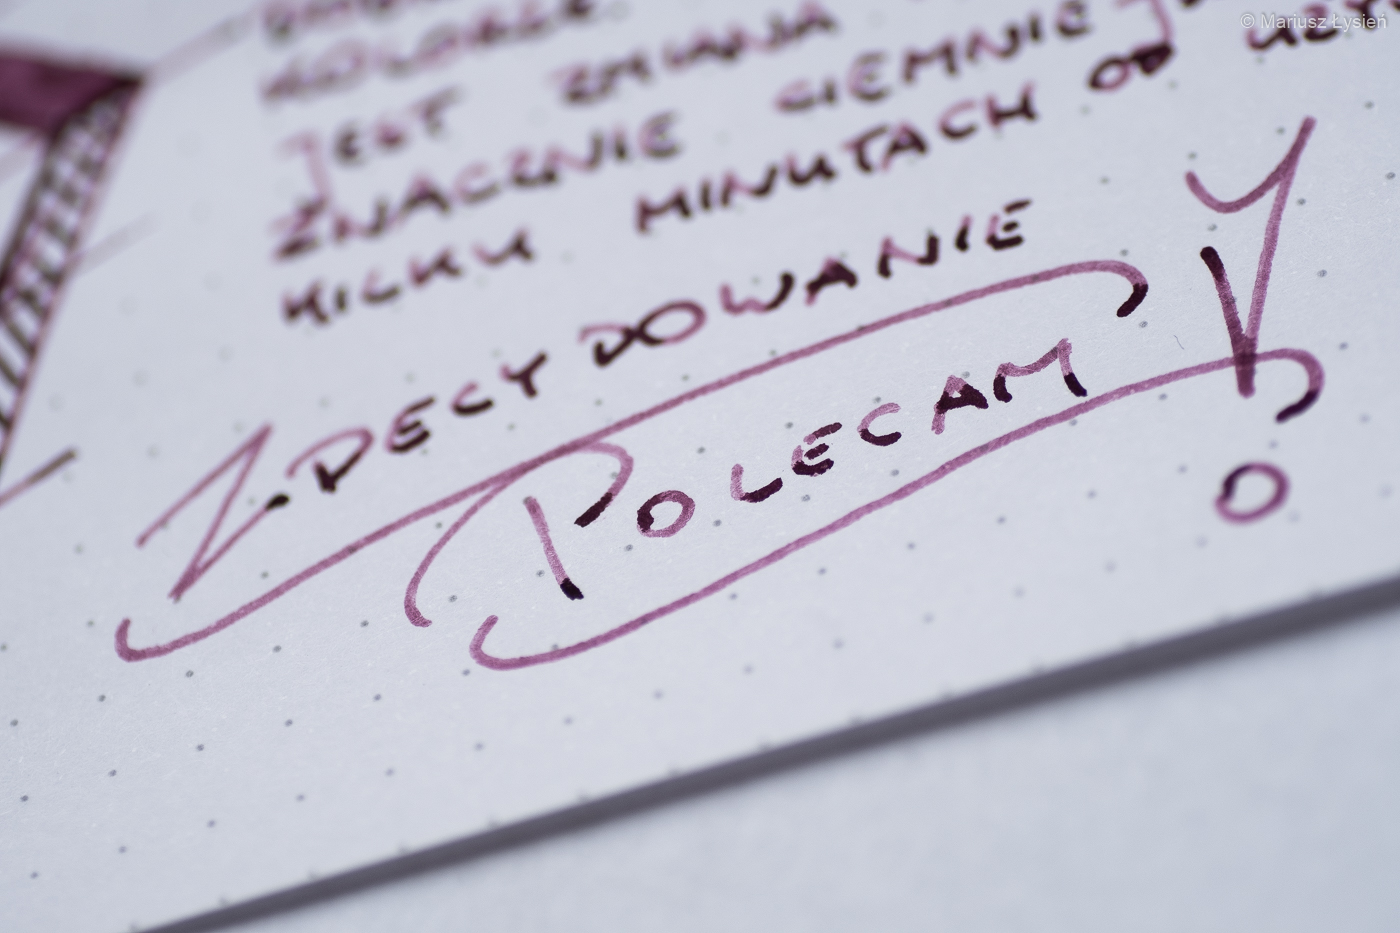 © Mariusz Łysień
KOLORZE
JEST ZMIANA
ZNACZNIE CIEMNIEJ
KILKU MINUTACH OD
ZDECYDOWANIE
POLECAM!